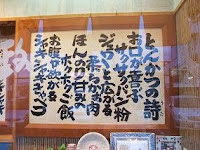 とんかつの詩
お口が喜ぶ
サクサクのパン粉
ジュワ〜と広がる
柔らかお肉
ほんのり甘みの
ホクホクご飯
お腹が飲がる
シャキシャキキャベツ